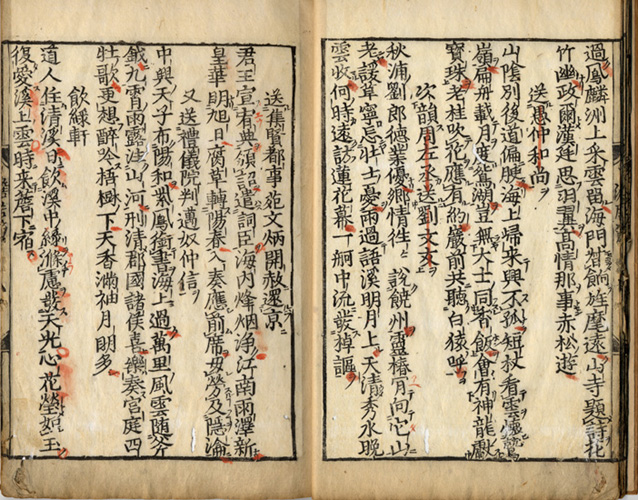 過鳳麟洲上采雲留海門餉旌麾遠山寺題詩花
竹幽政爾灌廷思羽高情那事赤松遊
送愚仲和尚
山陰別後道偏腴海上歸來興不孤短杖看雲懷鷲
嶺扁舟載月度鴛湖豈無大士同香飯會有神龍獻
寶珠老桂吹花應有約巖前共聽白猿呼
次韻周左丞送劉文
秋浦劉郎德業優鄉情徃〻說饒州靈椿肯向它山
老諼草寧忘壮士憂雨過語溪明月上天清秀水晚
雲收何時遠訪蓮花幕一舸中流發掉謳
送集賢都事范文炳開赦還京
君王宣宥典頒詔遣詞臣海内烽烟浄江南雨澤新
皇華明旭日腐草轉陽春入奏應前席毋勞及隠淪
又送禮儀院判邁奴仲信
中興天子布陽和紫鳳銜書海上過萬里風雲随斧
鉞九霄雨露洽山河刑清郡國諸侯喜樂奏宫庭四
牡歌更想醉吟梧樹下天香滿袖月明多
飲緑軒
道人住清溪日飲溪中緑滌慮天光心花瑩如玉
復愛溪上雲時来簷下宿